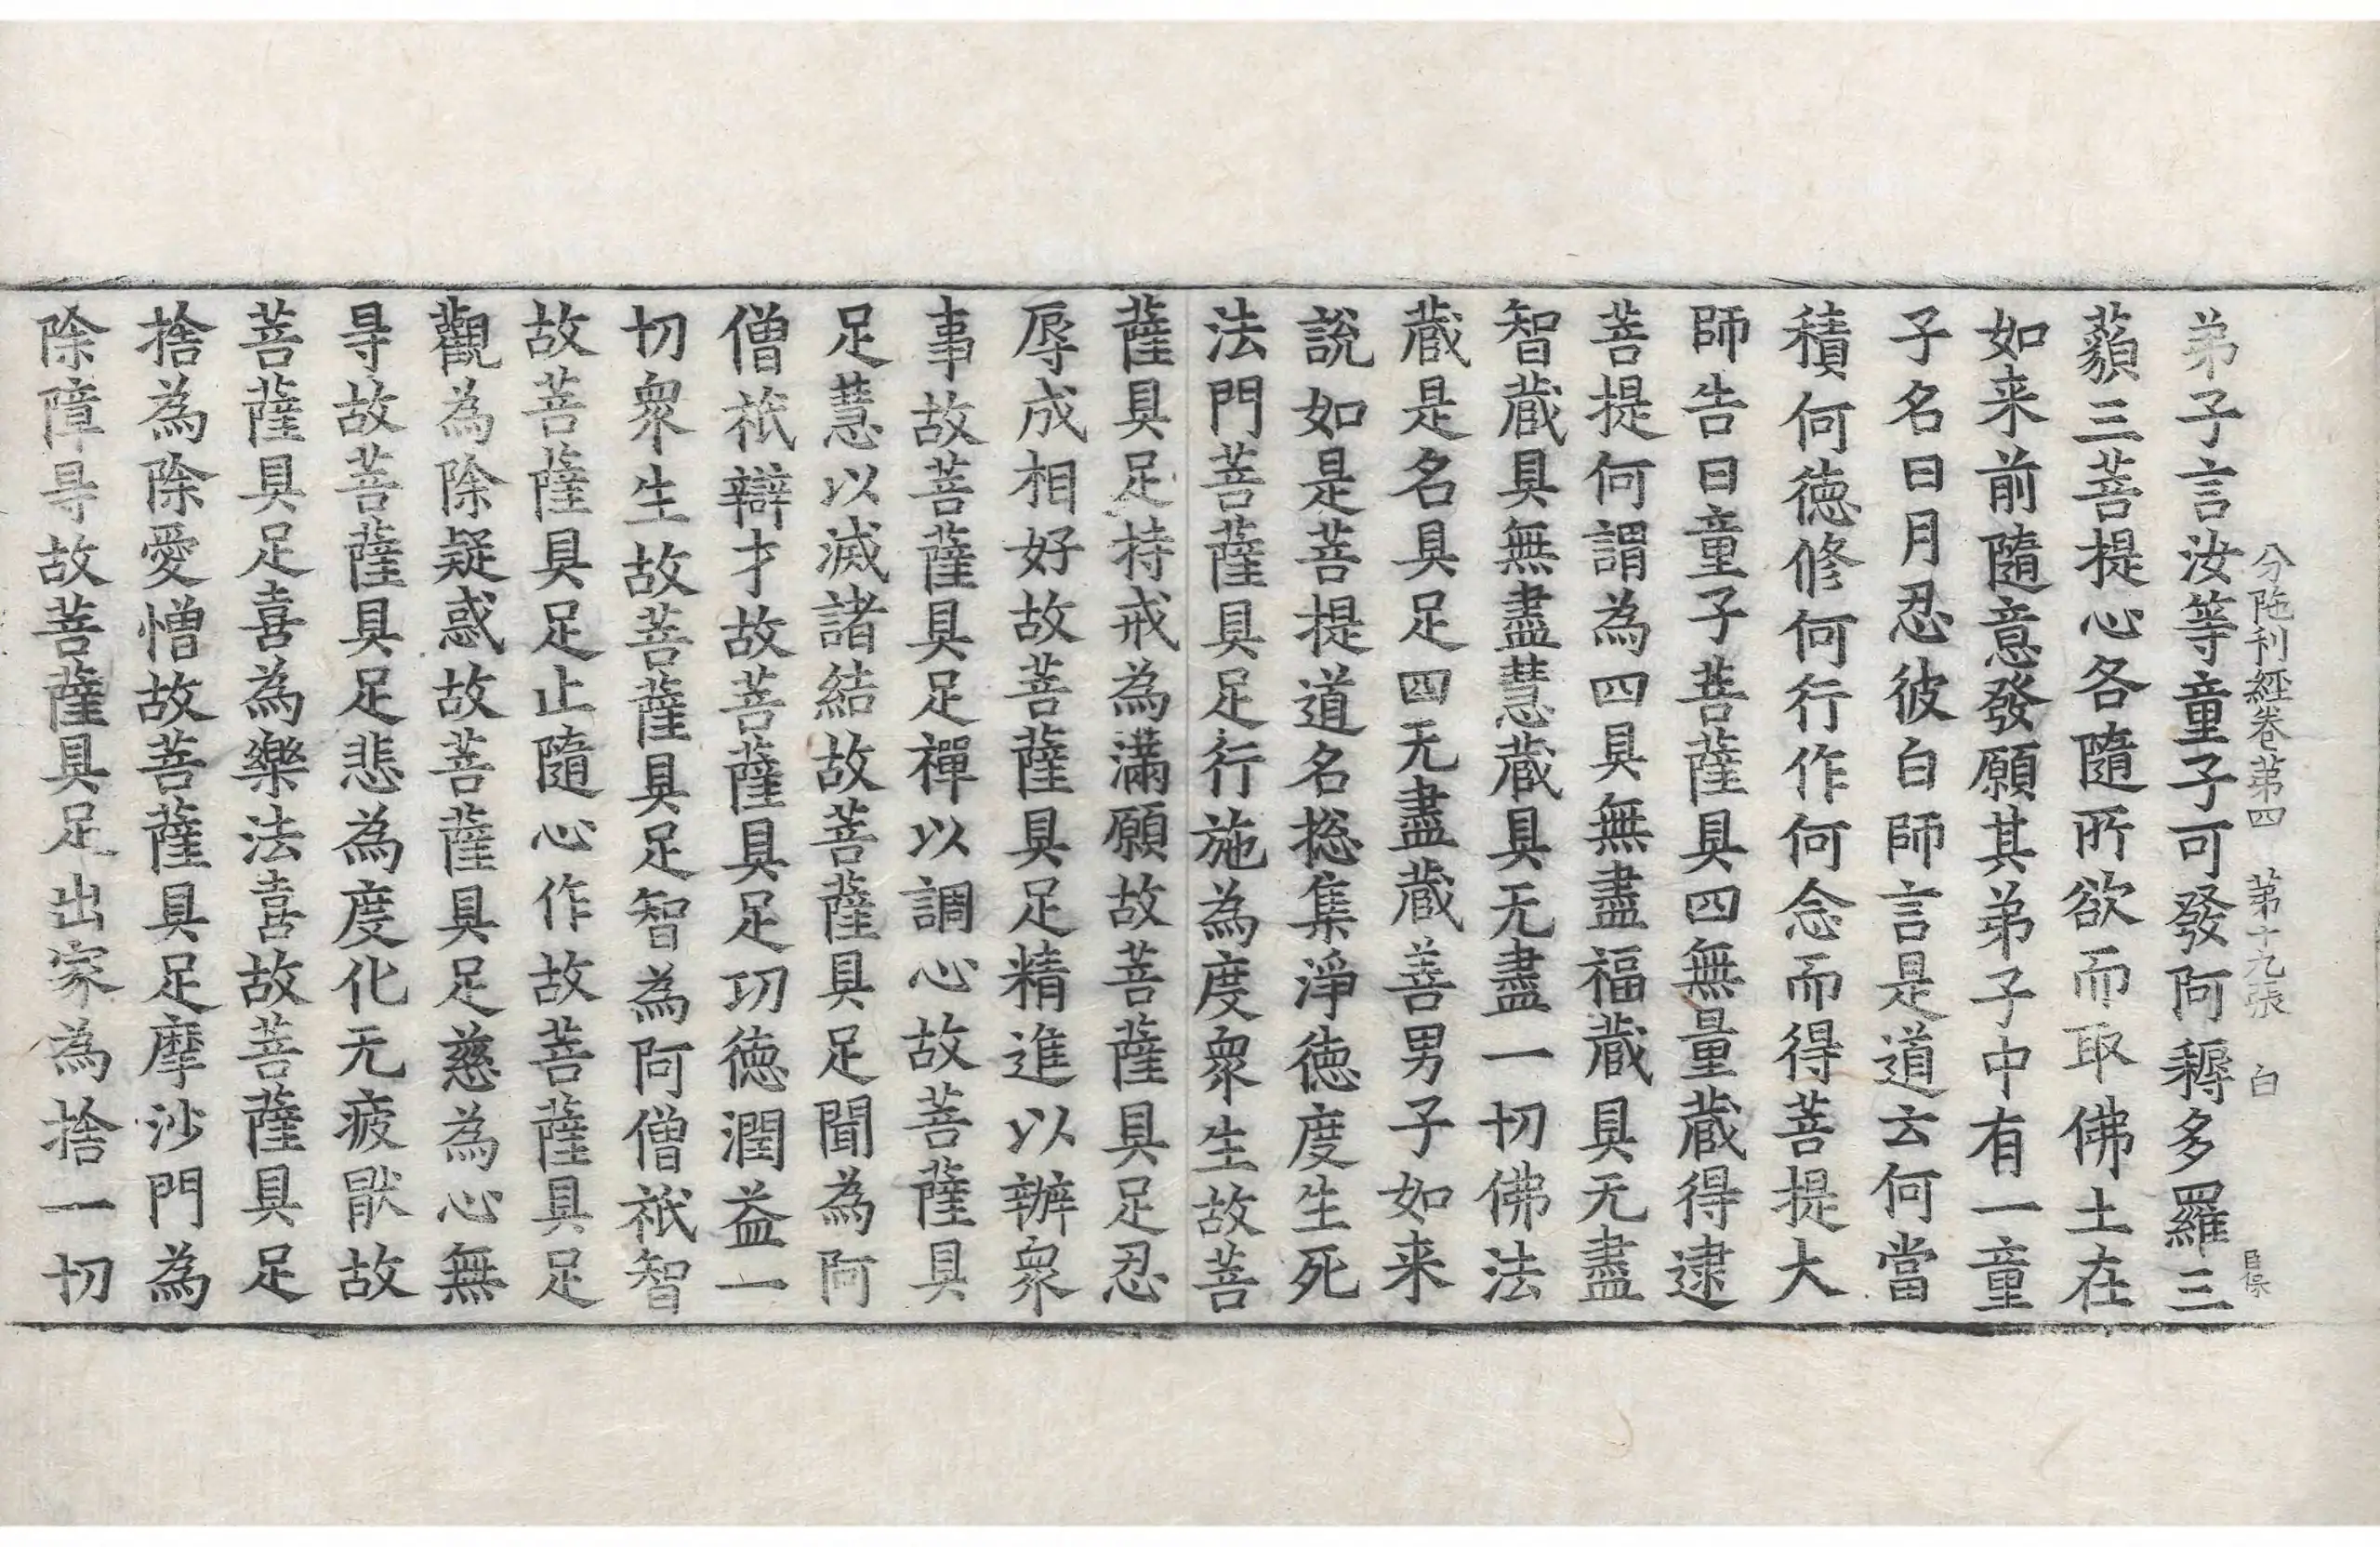 分陁利經卷第四 第十九張 白
弟子言汝等童子可發阿耨多羅三
藐三菩提心各隨所欲而取佛土在
如来前隨意發願其弟子中有一童
子名曰月忍彼白師言是道云何當
積何德修何行作何念而得菩提大
師告曰童子菩薩具四無量蔵得逮
菩提何謂為四具無盡福蔵具无盡
智蔵具無盡慧蔵具无盡一切佛法
蔵是名具足四无盡蔵善男子如来
說如是菩提道名捴集淨德度生死
法門菩薩具足行施為度衆生故菩
薩具足持戒為滿願故菩薩具足忍
辱成相好故菩薩具足精進以辦衆
事故菩薩具足禪以調心故菩薩具
足慧以滅諸結故菩薩具足聞為阿
僧祇辯才故菩薩具足功德潤益一
切衆生故菩薩具足智為阿僧祇智
故菩薩具足止隨心作故菩薩具足
觀為除疑惑故菩薩具足慈為心無
㝵故菩薩具足悲為度化无疲猒故
菩薩具足喜為樂法喜故菩薩具足
捨為除愛憎故菩薩具足摩沙門為
除障㝵故菩薩具足出家為捨一切